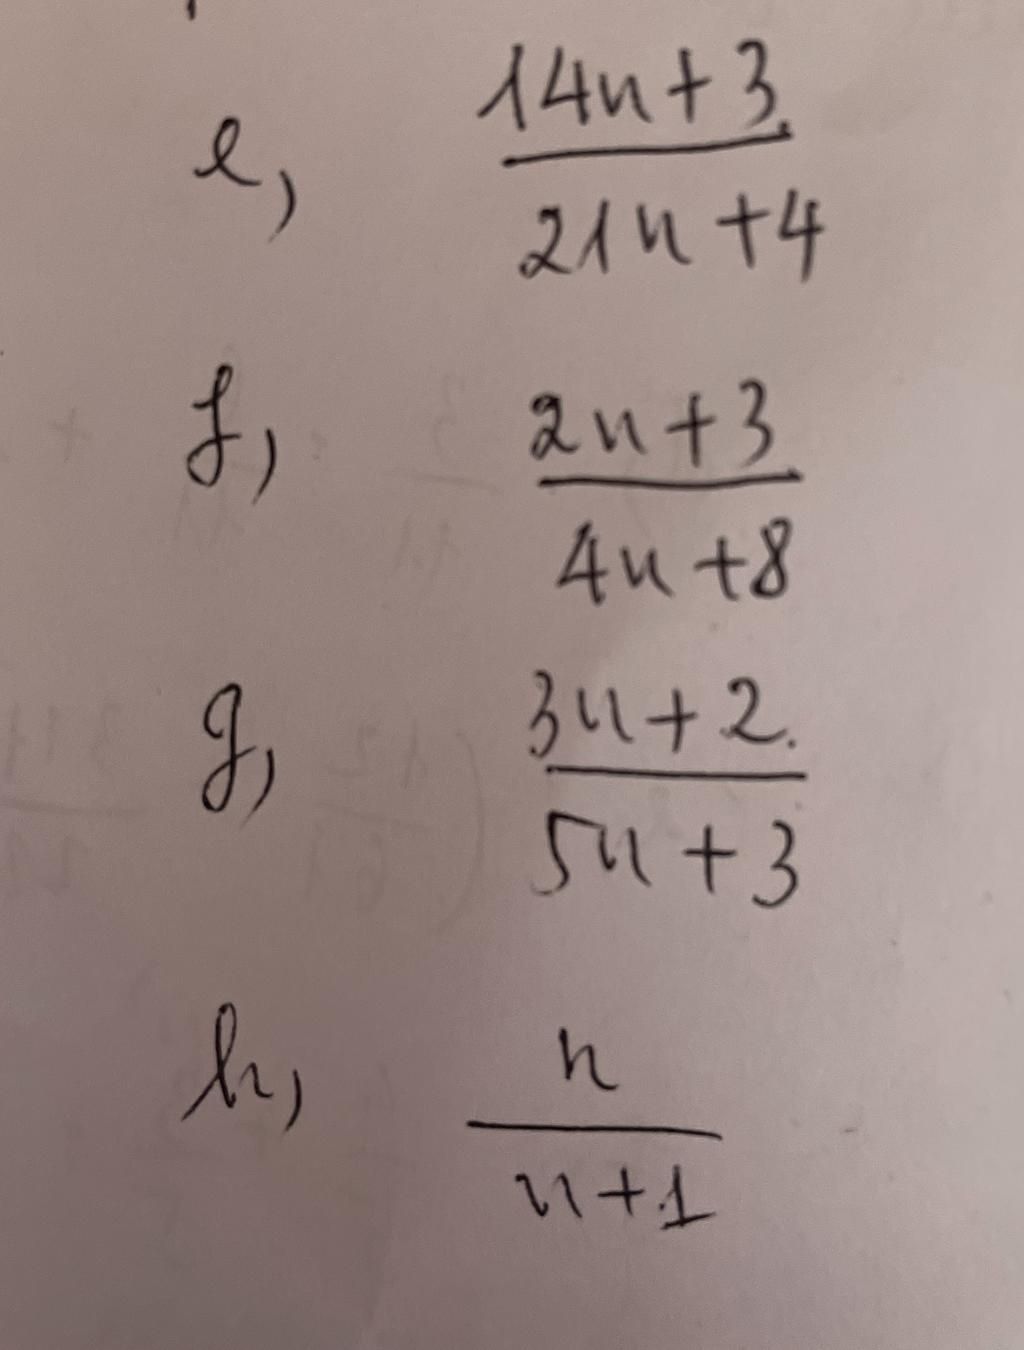 e, 14n+3
21n+4
f, 2n+3
4n+8
g, 3n+2.
5n+3
h, n
n+1